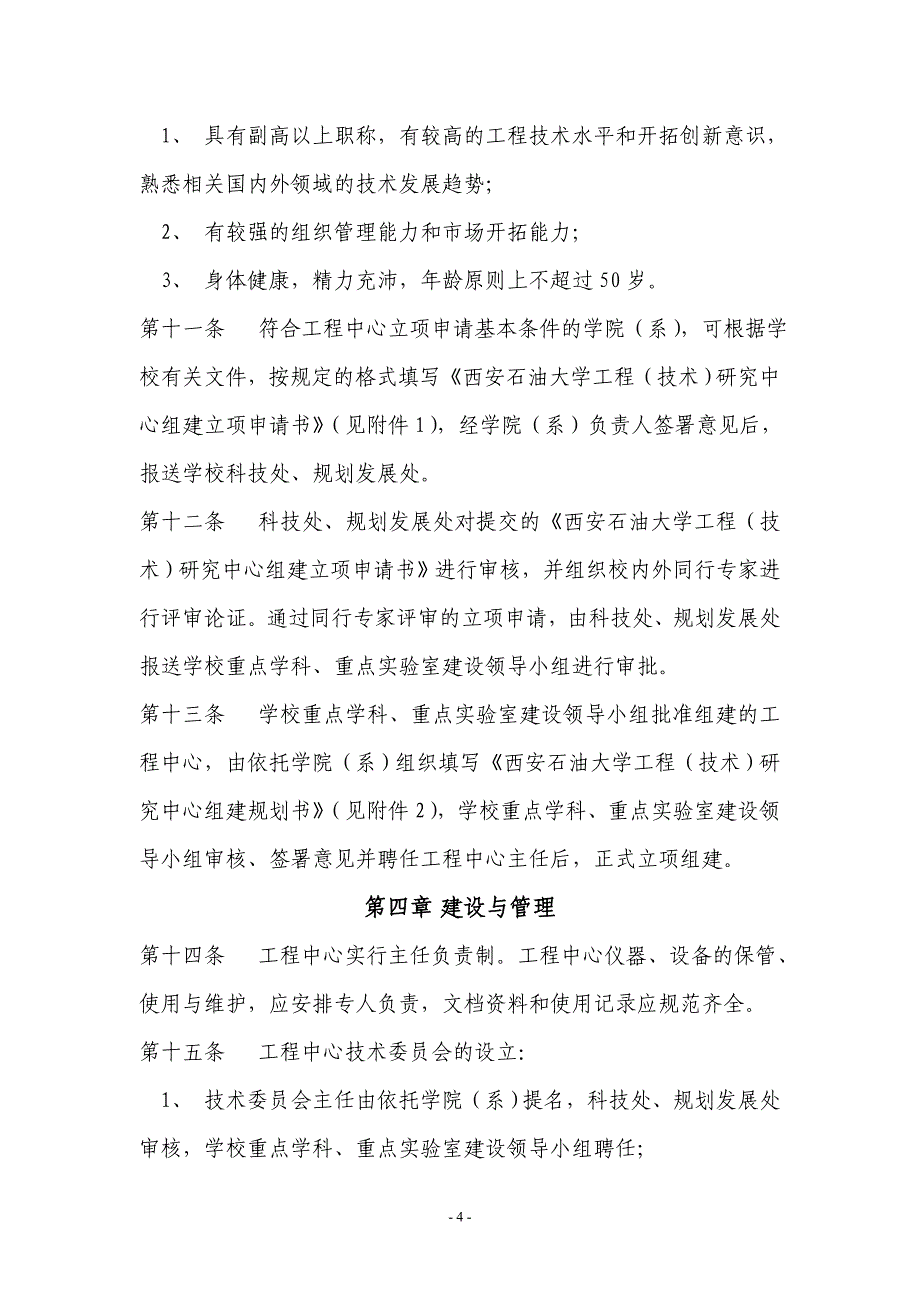 1、 具有副高以上职称，有较高的工程技术水平和开拓创新意识，
熟悉相关国内外领域的技术发展趋势；
2、 有较强的组织管理能力和市场开拓能力；
3、 身体健康，精力充沛，年龄原则上不超过 50 岁。
第十一条　符合工程中心立项申请基本条件的学院（系），可根据学
校有关文件，按规定的格式填写《西安石油大学工程（技术）研究中
心组建立项申请书》（见附件 1），经学院（系）负责人签署意见后，
报送学校科技处、规划发展处。
第十二条　科技处、规划发展处对提交的《西安石油大学工程（技
术）研究中心组建立项申请书》进行审核，并组织校内外同行专家进
行评审论证。通过同行专家评审的立项申请，由科技处、规划发展处
报送学校重点学科、重点实验室建设领导小组进行审批。
第十三条　学校重点学科、重点实验室建设领导小组批准组建的工
程中心，由依托学院（系）组织填写《西安石油大学工程（技术）研
究中心组建规划书》（见附件 2），学校重点学科、重点实验室建设领
导小组审核、签署意见并聘任工程中心主任后，正式立项组建。
第四章 建设与管理
第十四条　工程中心实行主任负责制。工程中心仪器、设备的保管、
使用与维护，应安排专人负责，文档资料和使用记录应规范齐全。
第十五条　工程中心技术委员会的设立：
1、 技术委员会主任由依托学院（系）提名，科技处、规划发展处
审核，学校重点学科、重点实验室建设领导小组聘任；
- 4 -